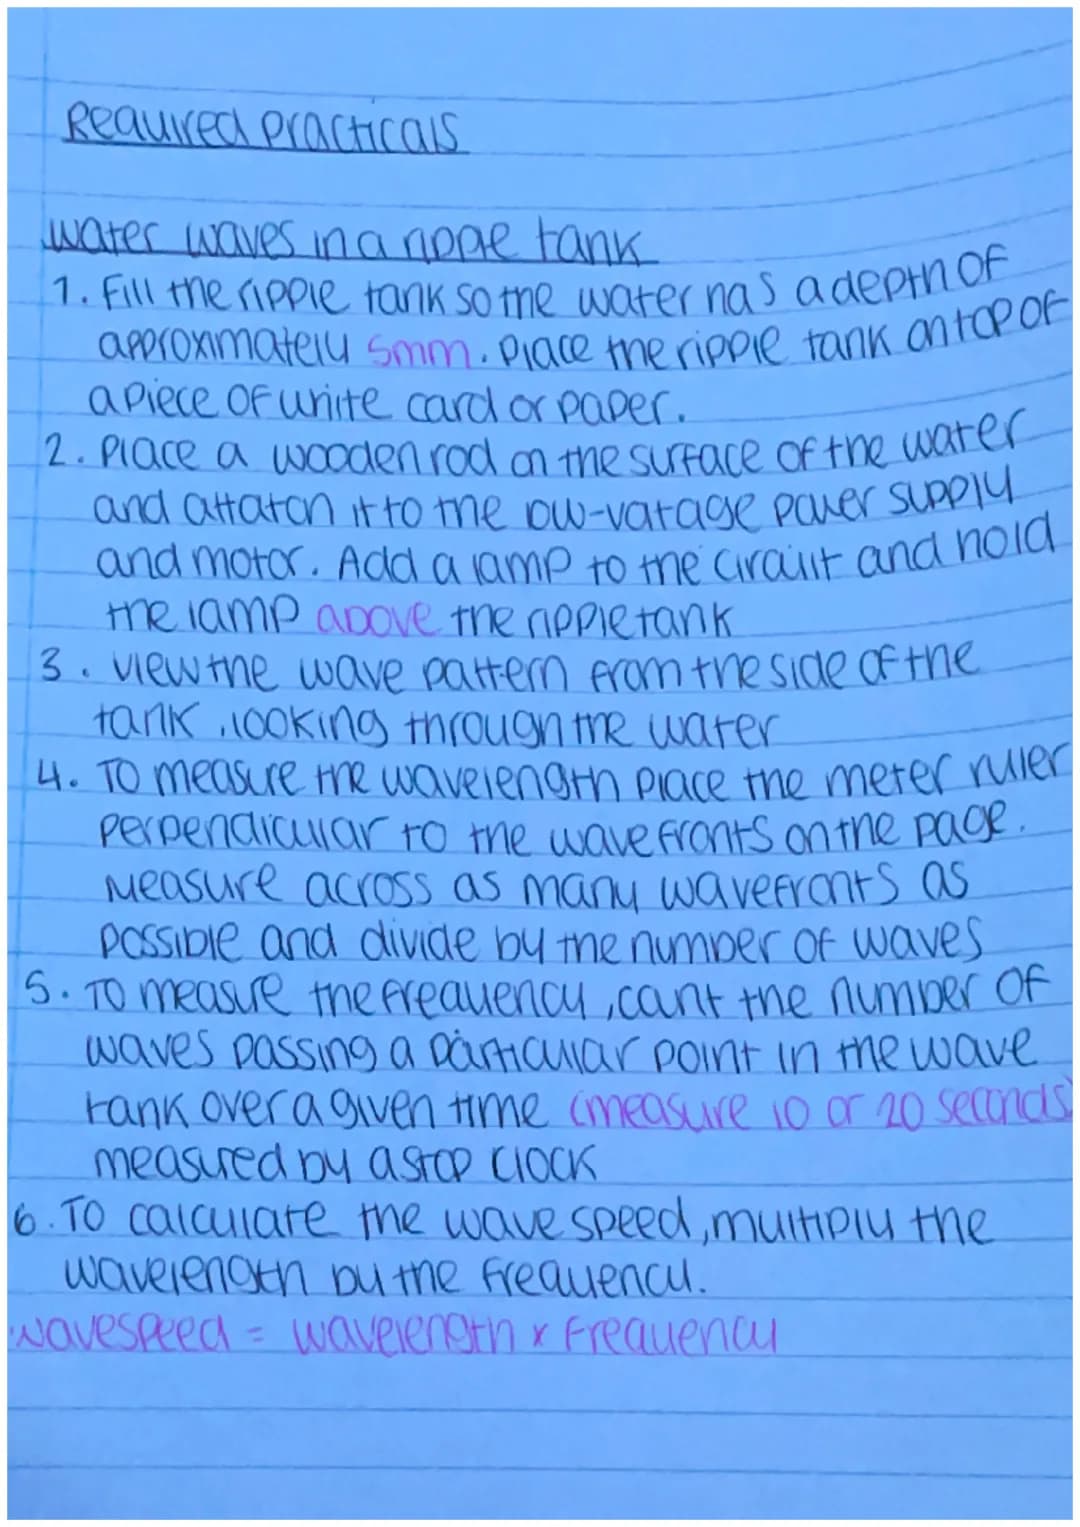 Required practicals
water waves in a ripple tank
1. Fill the ripple tank so the water has a depth of
approximately 5mm. Place the ripple tank on top of
a piece of white card or paper.
2. Place a wooden rod on the surface of the water
and attatch it to the low-votage power supply
and motor. Add a lamp to the circuit and hold
the lamp above the ripple tank
3. view the wave pattern from the side of the
tank, looking through the water
4. To measure the wavelength place the meter ruler
perpendicular to the wavefronts on the page.
Measure across as many wavefronts as
possible and divide by the number of waves
5. To measure the frequency, count the number of
waves passing a particular point in the wave
tank over a given time (measure 10 or 20 seconds)
measured by a stop clock
6. To calculate the wave speed, multiply the
wavelength by the frequency.
wavespeed = wavelength x frequency